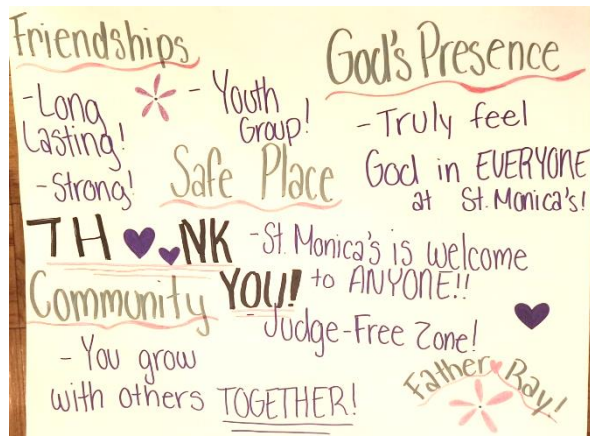 Friendships
- Long
Lasting!
- Strong!
- Youth
Group!
God's Presence
- Truly feel
God in EVERYONE
at St. Monica's!
Safe Place
- St. Monica's is welcome
to ANYONE!!
- Judge-Free Zone!
TH NK
YOU!
Community
- You grow
with others TOGETHER!
Father Ray!